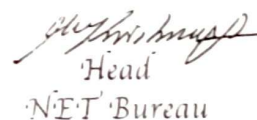 Head
N·E·T· Bureau